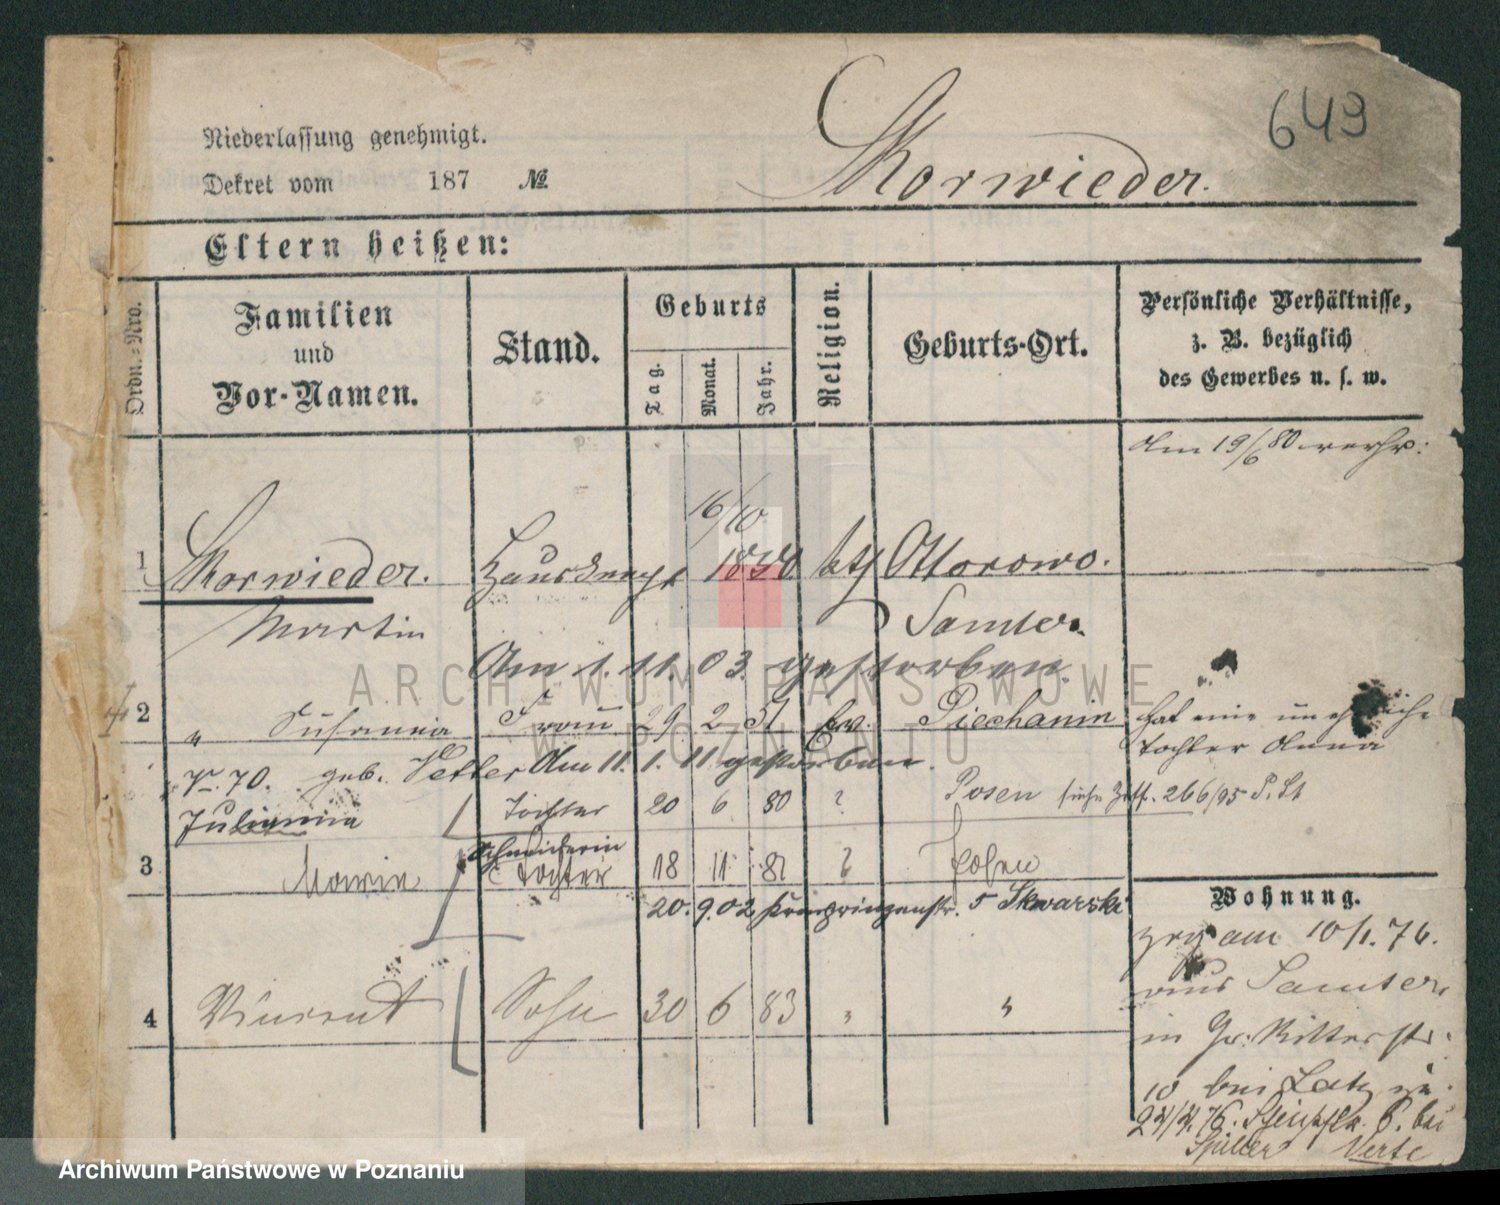 649
Niederlassung genehmigt.
Dekret vom 187 №
Skorwieder.
Eltern heißen:
Ordn.-Nro.
Familien und Vor-Namen.
Stand.
Geburts
Tag.
Monat.
Jahr.
Religion.
Geburts-Ort.
Persönliche Verhältnisse, z. B. bezüglich des Gewerbes u. s. w.
Am 19/6 80 verhr:
16/10
1 Skorwieder. Hausknecht 1850 kth Ottorowo.
Martin Samter.
Am 1. 11. 03. gestorben.
2 " Susanna Frau 29 2 51 ev. Piechanin hat eine uneheliche
Tochter Anna
geb. Vetter Am 11. 1. 11 gestorben.
Julianna Tochter 20 6 80 ? Posen siehe 266/95 P. St
Schneiderin
3 Maria Tochter 18 11 81 ? Posen
20. 9. 02 Kronprinzenstr. 5 Skwarski
Wohnung.
zog am 10/1. 76.
aus Samter,
in Gr. Ritterstr.
10 bei Latz
4 Vincent Sohn 30 6 83 " "
24/4. 76. 6. bei
Spiller Verte
ARCHIWUM PAŃSTWOWE
W POZNANIU
Archiwum Państwowe w Poznaniu